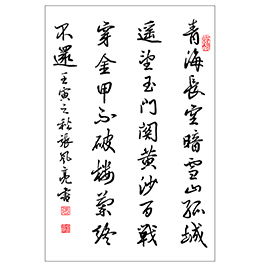 青海長空暗雪山孤城
遥望玉門関黄沙百戰
穿金甲不破樓蘭終
不還 壬寅之秋張風亮書